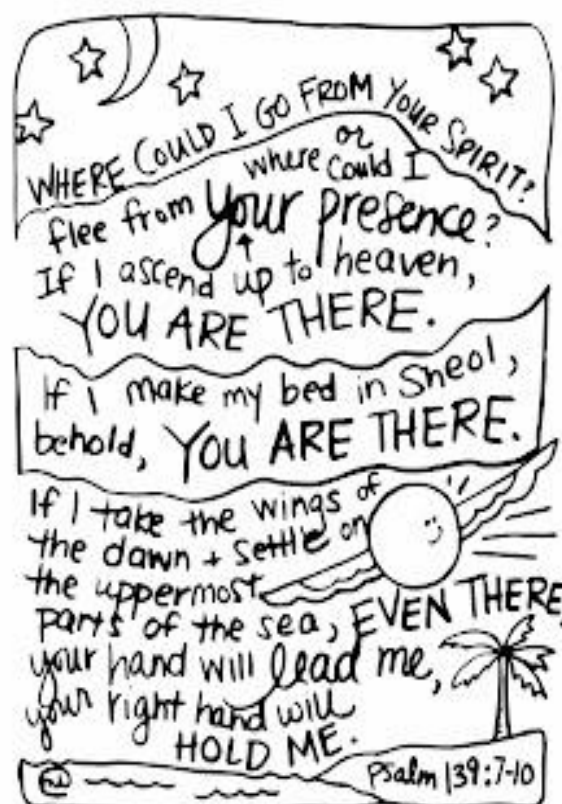 WHERE COULD I GO FROM YOUR SPIRIT?
or
where could I
flee from your presence?
If I ascend up to heaven,
YOU ARE THERE.
If I make my bed in Sheol,
behold, YOU ARE THERE.
If I take the wings of
the dawn + settle on
the uppermost
parts of the sea, EVEN THERE,
your hand will lead me,
your right hand will
HOLD ME.
Psalm 139:7-10